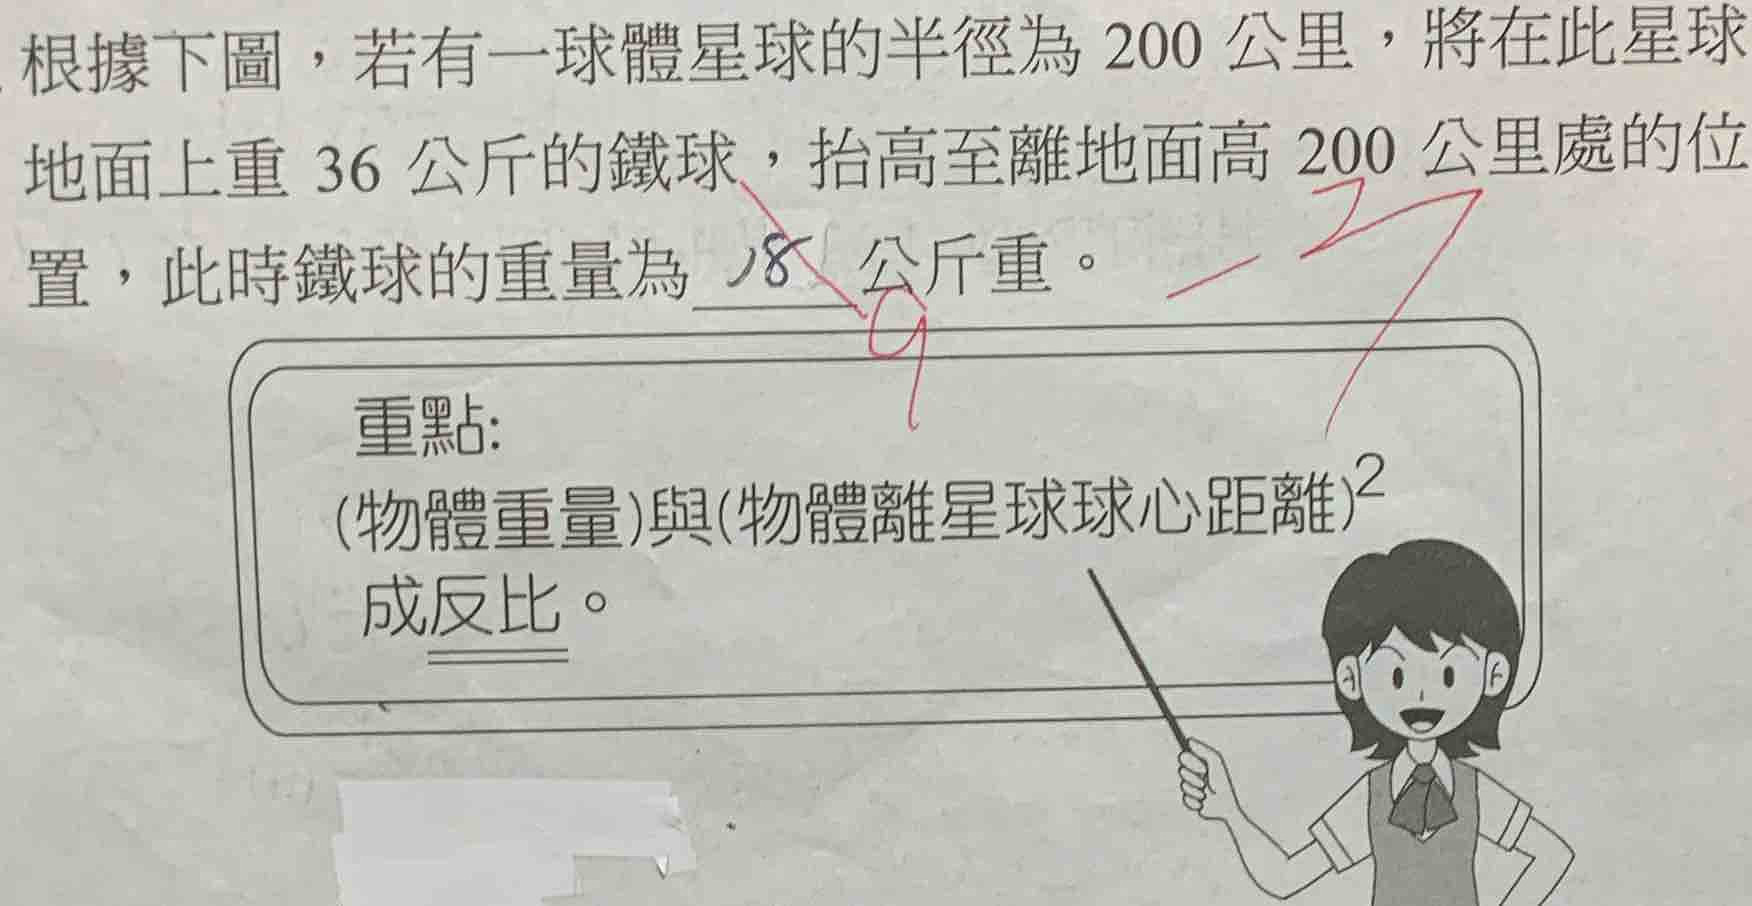 根據下圖，若有一球體星球的半徑為 200 公里，將在此星球
地面上重 36 公斤的鐵球，抬高至離地面高 200 公里處的位
置，此時鐵球的重量為 18 公斤重。
9
-2
重點:
(物體重量)與(物體離星球球心距離)²
成反比。